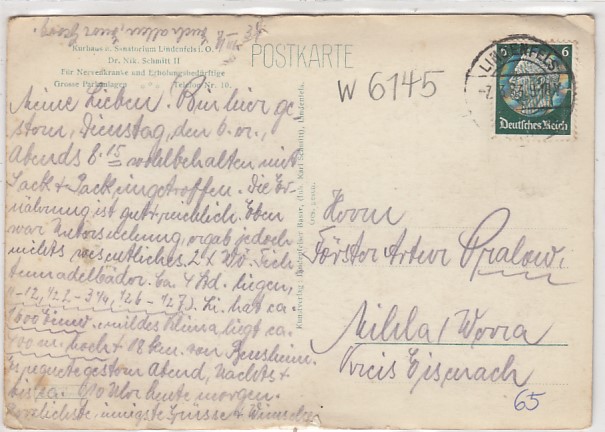 Kurhaus u. Sanatorium Lindenfels i. O.
Dr. Nik. Schmitt II
Für Nervenkranke und Erholungsbedürftige
Grosse Parkanlagen Telefon Nr. 10.
POSTKARTE
W 6145
LINDENFELS
6
Deutsches Reich
Meine Lieben. Bin hier ge
stern, Dienstag, den 6.
Abends 8.15 wohlbehalten mit
Sack + Pack eingetroffen. Die Er-
nährung ist gut + reichlich. Eben
war Untersuchung, ergab jedoch
nichts wesentliches. 2 x Wo. Fich
tennadelbäder. ca. 4 Std. liegen,
Li. hat ca.
1600 Einw. mildes Klima liegt ca.
400 m. hoch + 18 km. von Bensheim.
Es regnete gestern Abend, Nachts +
bis ca. 10 Uhr heute morgen.
Herzlichste, innigste Grüsse + Wünsche
Kunstverlag: Lindenfelser Bazar, (Inh. Karl Schmitt), Lindenfels.
Ges. gesch.
Herrn
Förster Artur
Mihla / Werra
Kreis Eisenach
65